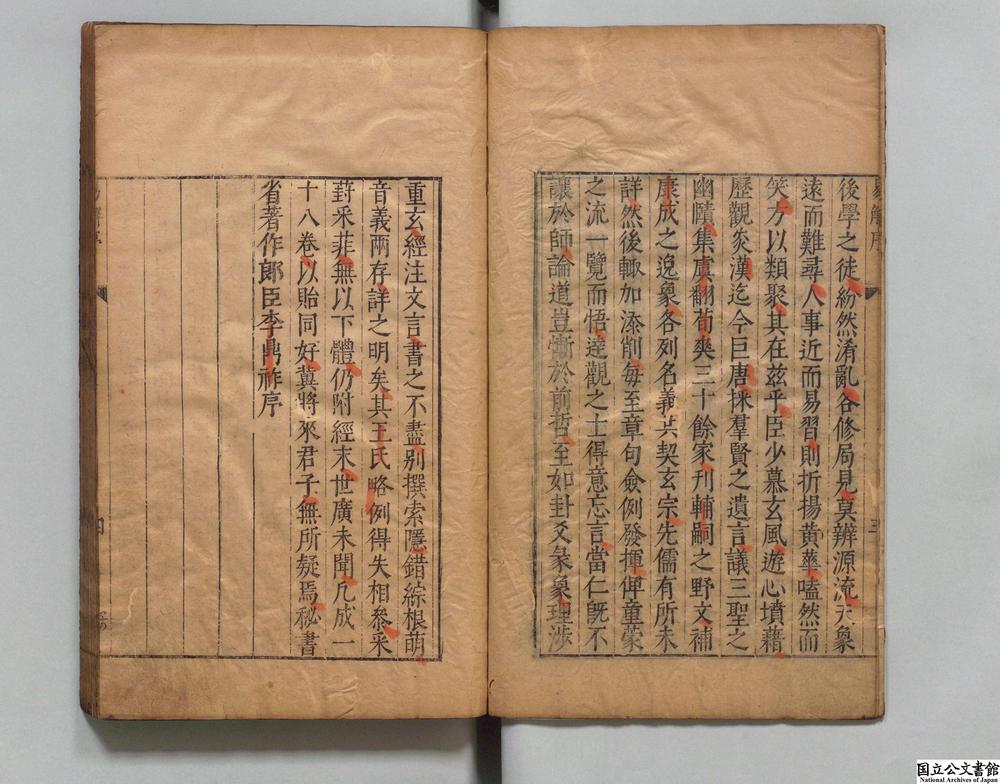 易解序
後學之徒紛然淆亂各修局見莫辨源流天象
遠而難尋人事近而易習則折揚黃華嗑然而
笑方以類聚其在兹乎臣少慕玄風遊心墳藉
歷觀炎漢迄今巨唐採羣賢之遺言議三聖之
幽賾集虞翻荀爽三十餘家刊輔嗣之野文補
康成之逸象各列名義共契玄宗先儒有所未
詳然後輙加添削每至章句僉例發揮俾童蒙
之流一覽而悟達觀之士得意忘言當仁旣不
讓於師論道豈慚於前哲至如卦爻彖象理涉
重玄經注文言書之不盡别撰索隱錯綜根萌
音義兩存詳之明矣其王氏略例得失相參采
葑采菲無以下體仍附經末世廣未聞凡成一
十八卷以貽同好冀將來君子無所疑焉秘書
省著作郎臣李鼎祚序
国立公文書館
National Archives of Japan